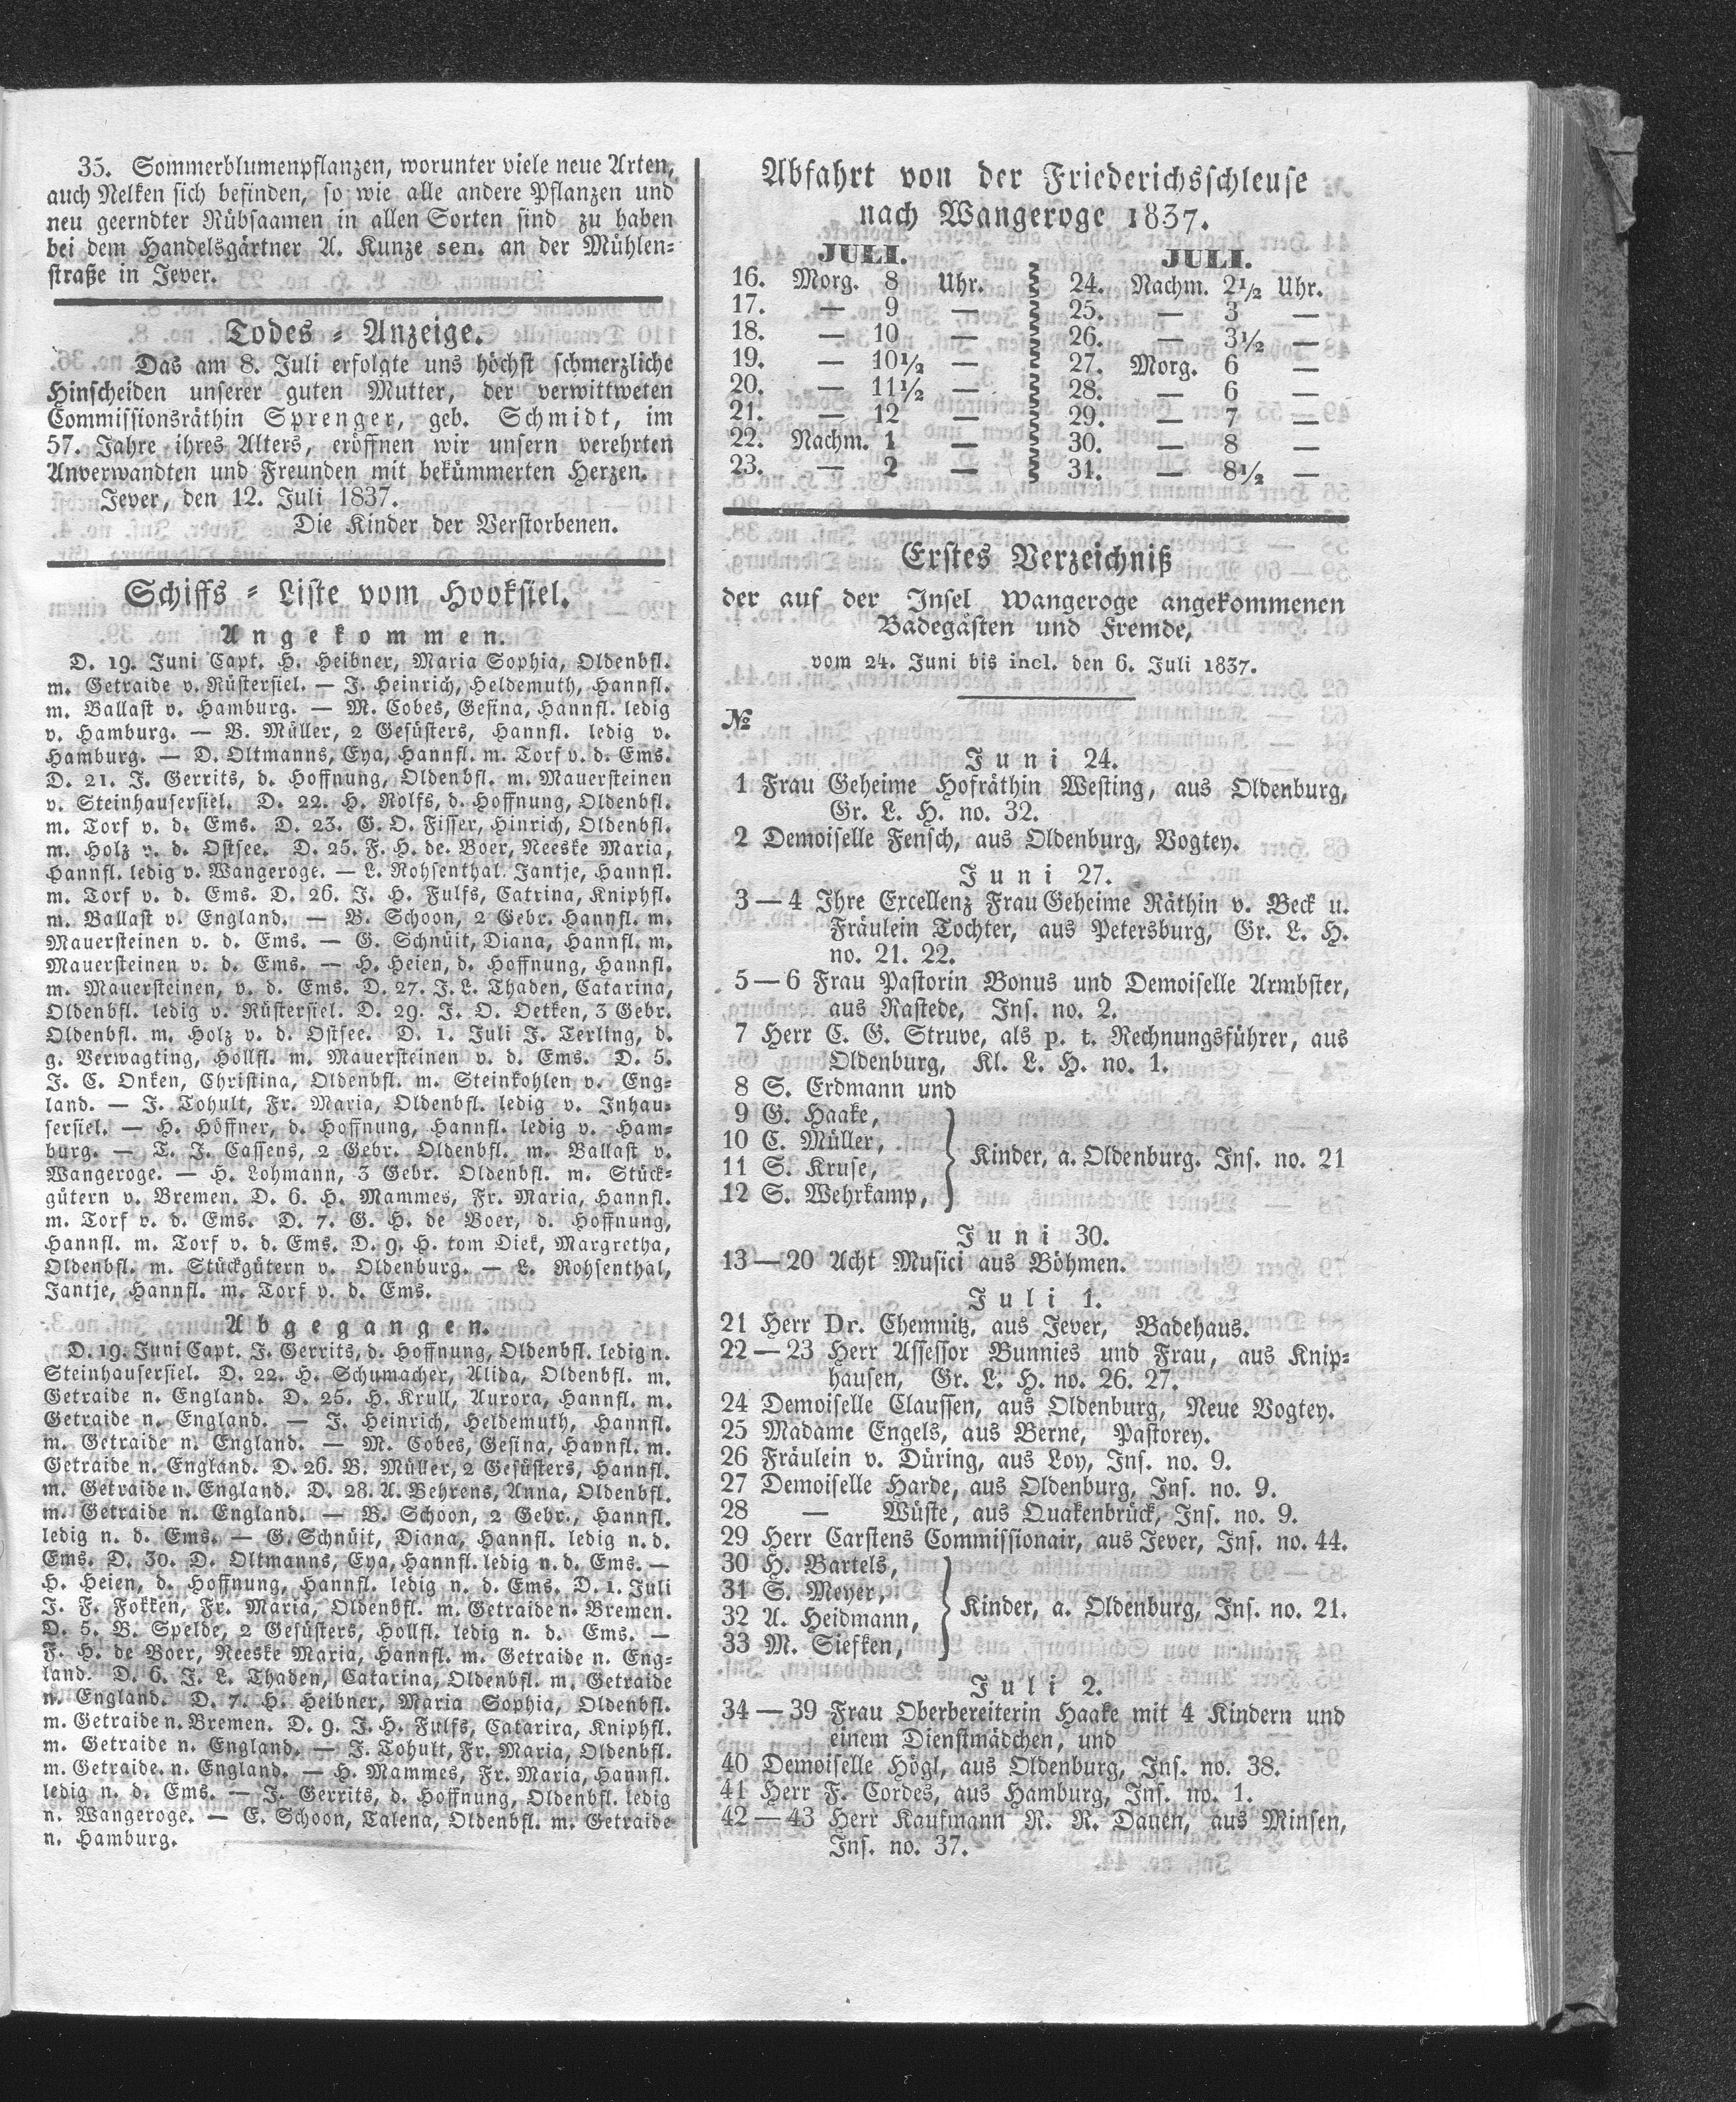 35. Sommerblumenpflanzen, worunter viele neue Arten,
auch Nelken sich befinden, so wie alle andere Pflanzen und
neu geerndter Rübsaamen in allen Sorten sind zu haben
bei dem Handelsgärtner A. Kunze sen. an der Mühlen=
straße in Jever.
Todes = Anzeige.
Das am 8. Juli erfolgte uns höchst schmerzliche
Hinscheiden unserer guten Mutter, der verwittweten
Commissionsräthin Sprenger, geb. Schmidt, im
57. Jahre ihres Alters, eröffnen wir unsern verehrten
Anverwandten und Freunden mit bekümmerten Herzen.
Jever, den 12. Juli 1837.
Die Kinder der Verstorbenen.
Schiffs = Liste vom Hooksiel.
Angekommen.
D. 19. Juni Capt. H. Heibner, Maria Sophia, Oldenbfl.
m. Getraide v. Rüstersiel. — J. Heinrich, Heldemuth, Hannfl.
m. Ballast v. Hamburg. — M. Cobes, Gesina, Hannfl. ledig
v. Hamburg. — B. Müller, 2 Gesüsters, Hannfl. ledig v.
Hamburg. — D. Oltmanns, Eya, Hannfl. m. Torf v. d. Ems.
D. 21. J. Gerrits, d. Hoffnung, Oldenbfl. m. Mauersteinen
v. Steinhausersiel. D. 22. H. Rolfs, d. Hoffnung, Oldenbfl.
m. Torf v. d. Ems. D. 23. G. O. Fisser, Hinrich, Oldenbfl.
m. Holz v. d. Ostsee. D. 25. F. H. de. Boer, Neeske Maria,
Hannfl. ledig v. Wangeroge. — L. Rohsenthal. Jantje, Hannfl.
m. Torf v. d. Ems. D. 26. J. H. Fulfs, Catrina, Kniphfl.
m. Ballast v. England. — B. Schoon, 2 Gebr. Hannfl. m.
Mauersteinen v. d. Ems. — G. Schnüit, Diana, Hannfl. m.
Mauersteinen v. d. Ems. — H. Heien, d. Hoffnung, Hannfl.
m. Mauersteinen, v. d. Ems. D. 27. J. L. Thaden, Catarina,
Oldenbfl. ledig v. Rüstersiel. D. 29. J. O. Oetken, 3 Gebr.
Oldenbfl. m. Holz v. d. Ostsee. D. 1. Juli J. Terling, d.
g. Verwagting, Hollfl. m. Mauersteinen v. d. Ems. D. 5.
J. C. Onken, Christina, Oldenbfl. m. Steinkohlen v. Eng=
land. — J. Tohult, Fr. Maria, Oldenbfl. ledig v. Inhau=
sersiel. — H. Höffner, d. Hoffnung, Hannfl. ledig v. Ham=
burg. — T. J. Cassens, 2 Gebr. Oldenbfl. m. Ballast v.
Wangeroge. — H. Lohmann, 3 Gebr. Oldenbfl. m. Stück=
gütern v. Bremen. D. 6. H. Mammes, Fr. Maria, Hannfl.
m. Torf v. d. Ems. D. 7. G. H. de Boer, d. Hoffnung,
Hannfl. m. Torf v. d. Ems. D. 9. H. tom Diek, Margretha,
Oldenbfl. m. Stückgütern v. Oldenburg. — L. Rohsenthal,
Jantje, Hannfl. m. Torf v. d. Ems.
Abgegangen.
D. 19. Juni Capt. J. Gerrits, d. Hoffnung, Oldenbfl. ledig n.
Steinhausersiel. D. 22. H. Schumacher, Alida, Oldenbfl. m.
Getraide n. England. D. 25. H. Krull, Aurora, Hannfl. m.
Getraide n. England. — J. Heinrich, Heldemuth, Hannfl.
m. Getraide n. England. — M. Cobes, Gesina, Hannfl. m.
Getraide n. England. D. 26. B. Müller, 2 Gesüsters, Hannfl.
m. Getraide n. England. D. 28. A. Behrens, Anna, Oldenbfl.
m. Getraide n. England. — B. Schoon, 2 Gebr., Hannfl.
ledig n. d. Ems. — G. Schnüit, Diana, Hannfl. ledig n. d.
Ems. D. 30. D. Oltmanns, Eya, Hannfl. ledig n. d. Ems. —
H. Heien, d. Hoffnung, Hannfl. ledig n. d. Ems. D. 1. Juli
J. F. Fokken, Fr. Maria, Oldenbfl. m. Getraide n. Bremen.
D. 5. B. Spelde, 2 Gesüsters, Hollfl. ledig n. d. Ems. —
F. H. de Boer, Neeske Maria, Hannfl. m. Getraide n. Eng=
land. D. 6. J. L. Thaden, Catarina, Oldenbfl. m. Getraide
n. England. D. 7. H. Heibner, Maria Sophia, Oldenbfl.
m. Getraide n. Bremen. D. 9. J. H. Fulfs, Catarira, Kniphfl.
m. Getraide n. England. — J. Tohult, Fr. Maria, Oldenbfl.
m. Getraide. n. England. — H. Mammes, Fr. Maria, Hannfl.
ledig n. d. Ems. — J. Gerrits, d. Hoffnung, Oldenbfl. ledig
n. Wangeroge. — E. Schoon, Talena, Oldenbfl. m. Getraide
n. Hamburg.
Abfahrt von der Friederichsschleuse
nach Wangeroge 1837.
JULI. JULI.
16. Morg. 8 Uhr. 24. Nachm. 2½ Uhr.
17. — 9 — 25. — 3 —
18. — 10 — 26. — 3½ —
19. — 10½ — 27. Morg. 6 —
20. — 11½ — 28. — 6 —
21. — 12 — 29. — 7 —
22. Nachm. 1 — 30. — 8 —
23. — 2 — 31. — 8½ —
Erstes Verzeichniß
der auf der Insel Wangeroge angekommenen
Badegästen und Fremde,
vom 24. Juni bis incl. den 6. Juli 1837.
№
Juni 24.
1 Frau Geheime Hofräthin Westing, aus Oldenburg,
Gr. L. H. no. 32.
2 Demoiselle Fensch, aus Oldenburg, Vogtey.
Juni 27.
3 — 4 Ihre Excellenz Frau Geheime Räthin v. Beck u.
Fräulein Tochter, aus Petersburg, Gr. L. H.
no. 21. 22.
5 — 6 Frau Pastorin Bonus und Demoiselle Armbster,
aus Rastede, Ins. no. 2.
7 Herr C. G. Struve, als p. t. Rechnungsführer, aus
Oldenburg, Kl. L. H. no. 1.
8 S. Erdmann und
9 G. Haake,
10 C. Müller,
11 S. Kruse,
12 S. Wehrkamp,
Kinder, a. Oldenburg. Ins. no. 21
Juni 30.
13 — 20 Acht Musici aus Böhmen.
Juli 1.
21 Herr Dr. Chemnitz, aus Jever, Badehaus.
22 — 23 Herr Assessor Bunnies und Frau, aus Knip=
hausen, Gr. L. H. no. 26. 27.
24 Demoiselle Claussen, aus Oldenburg, Neue Vogtey.
25 Madame Engels, aus Berne, Pastorey.
26 Fräulein v. Düring, aus Loy, Ins. no. 9.
27 Demoiselle Harde, aus Oldenburg, Ins. no. 9.
28 — Wüste, aus Quakenbrück, Ins. no. 9.
29 Herr Carstens Commissionair, aus Jever, Ins. no. 44.
30 H. Bartels,
31 S. Meyer,
32 A. Heidmann,
33 M. Siefken,
Kinder, a. Oldenburg, Ins. no. 21.
Juli 2.
34 — 39 Frau Oberbereiterin Haake mit 4 Kindern und
einem Dienstmädchen, und
40 Demoiselle Högl, aus Oldenburg, Ins. no. 38.
41 Herr F. Cordes, aus Hamburg, Ins. no. 1.
42 — 43 Herr Kaufmann R. R. Dauen, aus Minsen,
Ins. no. 37.